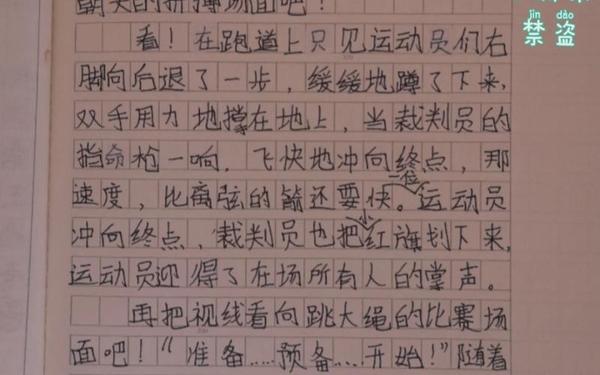 朝天的拼搏场面吧！
看！在跑道上只见运动员们右
脚向后退了一步，缓缓地蹲了下来，
双手用力地撑在地上，当裁判员的
指命枪一响，飞快地冲向终点，那
速度，比离弦的箭还要快。一位运动员
冲向终点，裁判员也把小红旗划下来，
运动员迎得了在场所有人的掌声。
再把视线看向跳大绳的比赛场
面吧！“准备……预备……开始！”随着
jìn dào
禁盗